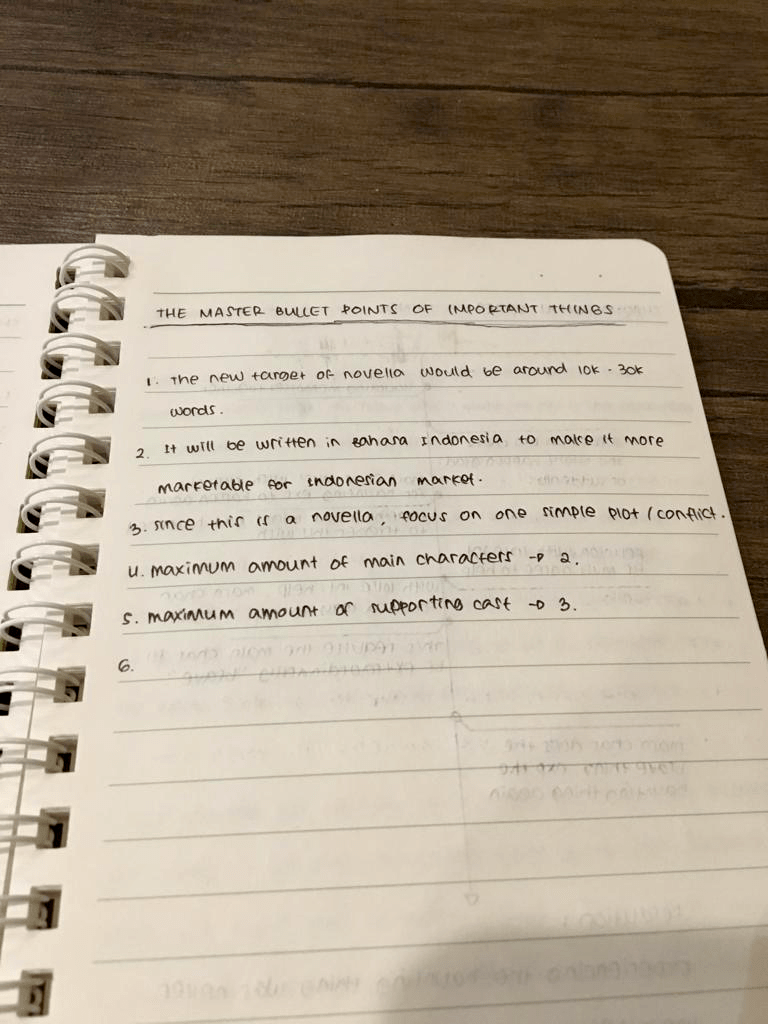 THE MASTER BULLET POINTS OF IMPORTANT THINGS
1. The new target of novella would be around 10k - 30k
words.
2. It will be written in Bahasa Indonesia to make it more
marketable for Indonesian market.
3. since this is a novella, focus on one simple plot / conflict.
4. maximum amount of main characters → 2.
5. maximum amount of supporting cast → 3.
6.